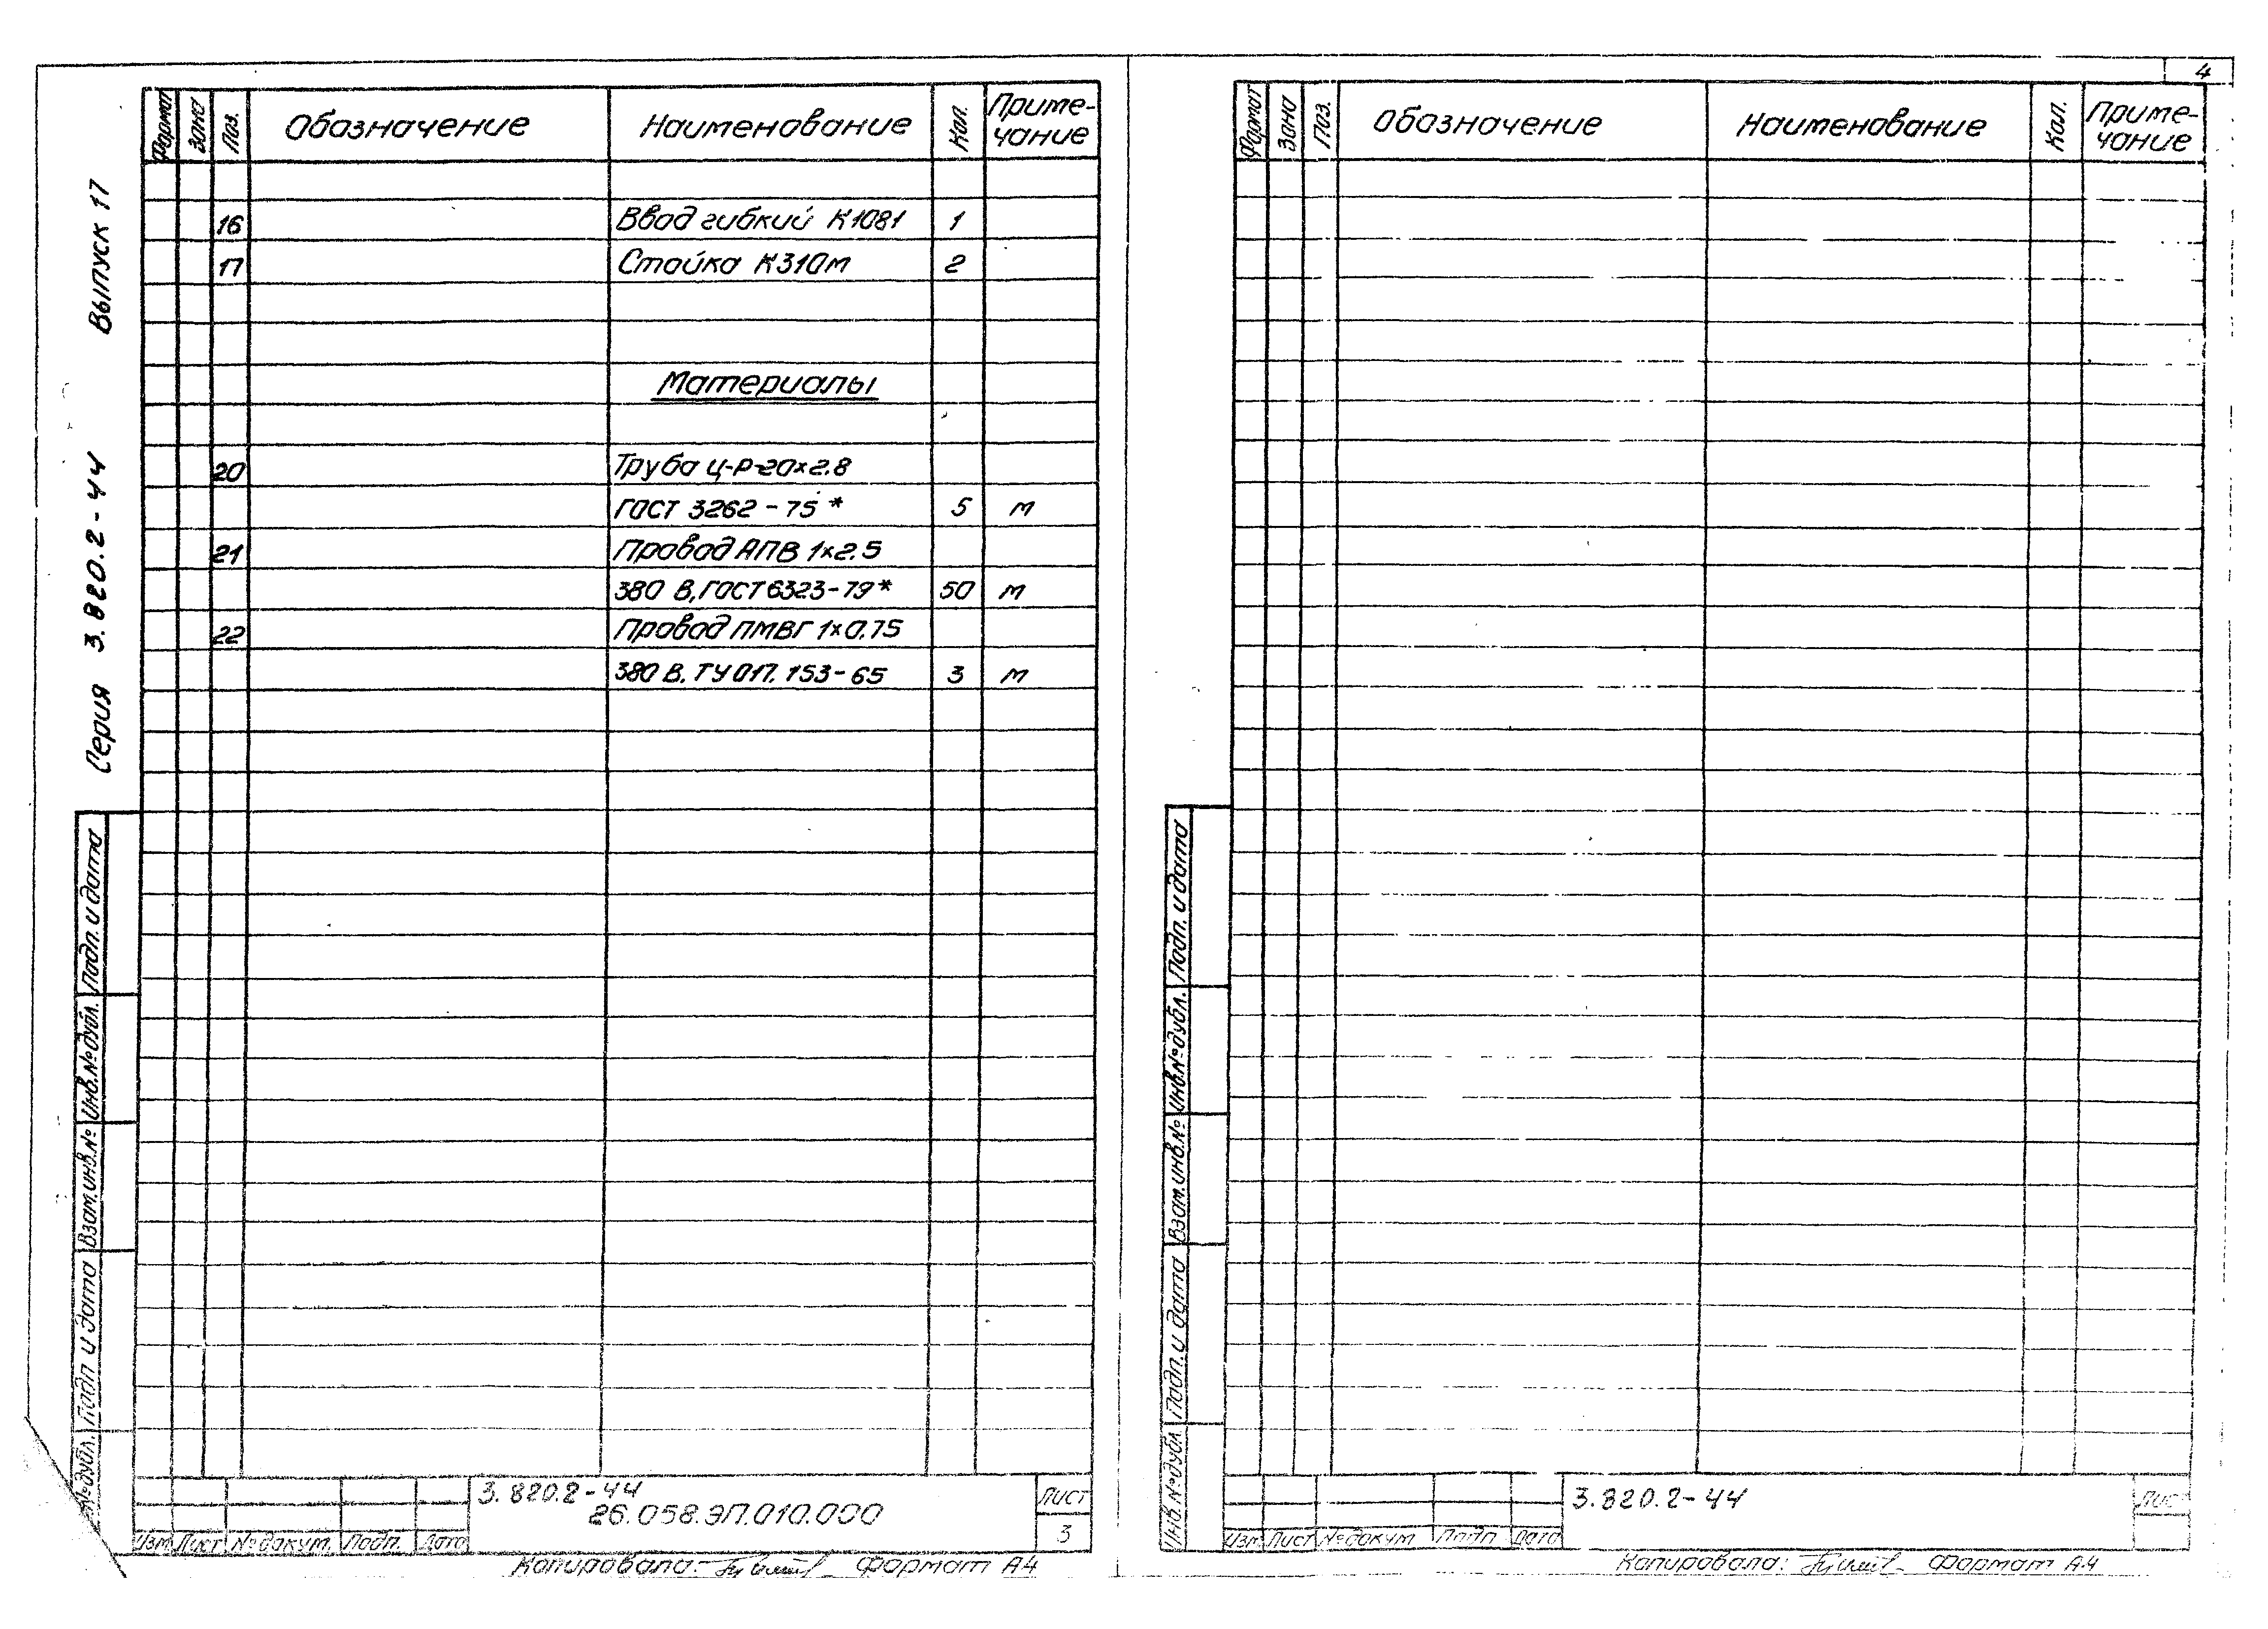 4
Формат Зона Поз. Обозначение Наименование Кол. Приме-
чание
16 Ввод гибкий К1081 1
17 Стойка К310м 2
Материалы
20 Труба Ц-Р-20×2.8
ГОСТ 3262-75* 5 м
21 Провод АПВ 1×2.5
380 В, ГОСТ 6323-79* 50 м
22 Провод ПМВГ 1×0.75
380 В, ТУ 017. 153-65 3 м
Серия 3.820.2-44 Выпуск 17
Подп. и дата
Инв.№дубл.
Взам.инв.№
Подп и дата
№дубл.
3.820.2-44
26.058.ЭП.010.000
Лист
3
Изм Лист №докум. Подп. Дата
Копировала: Формат А4
Формат Зона Поз. Обозначение Наименование Кол. Приме-
чание
Подп. и дата
Инв.№дубл.
Взам.инв.№
Подп. и дата
Инв.№дубл
3.820.2-44
Лист
Изм Лист №докум Подп Дата
Копировала: Формат А4